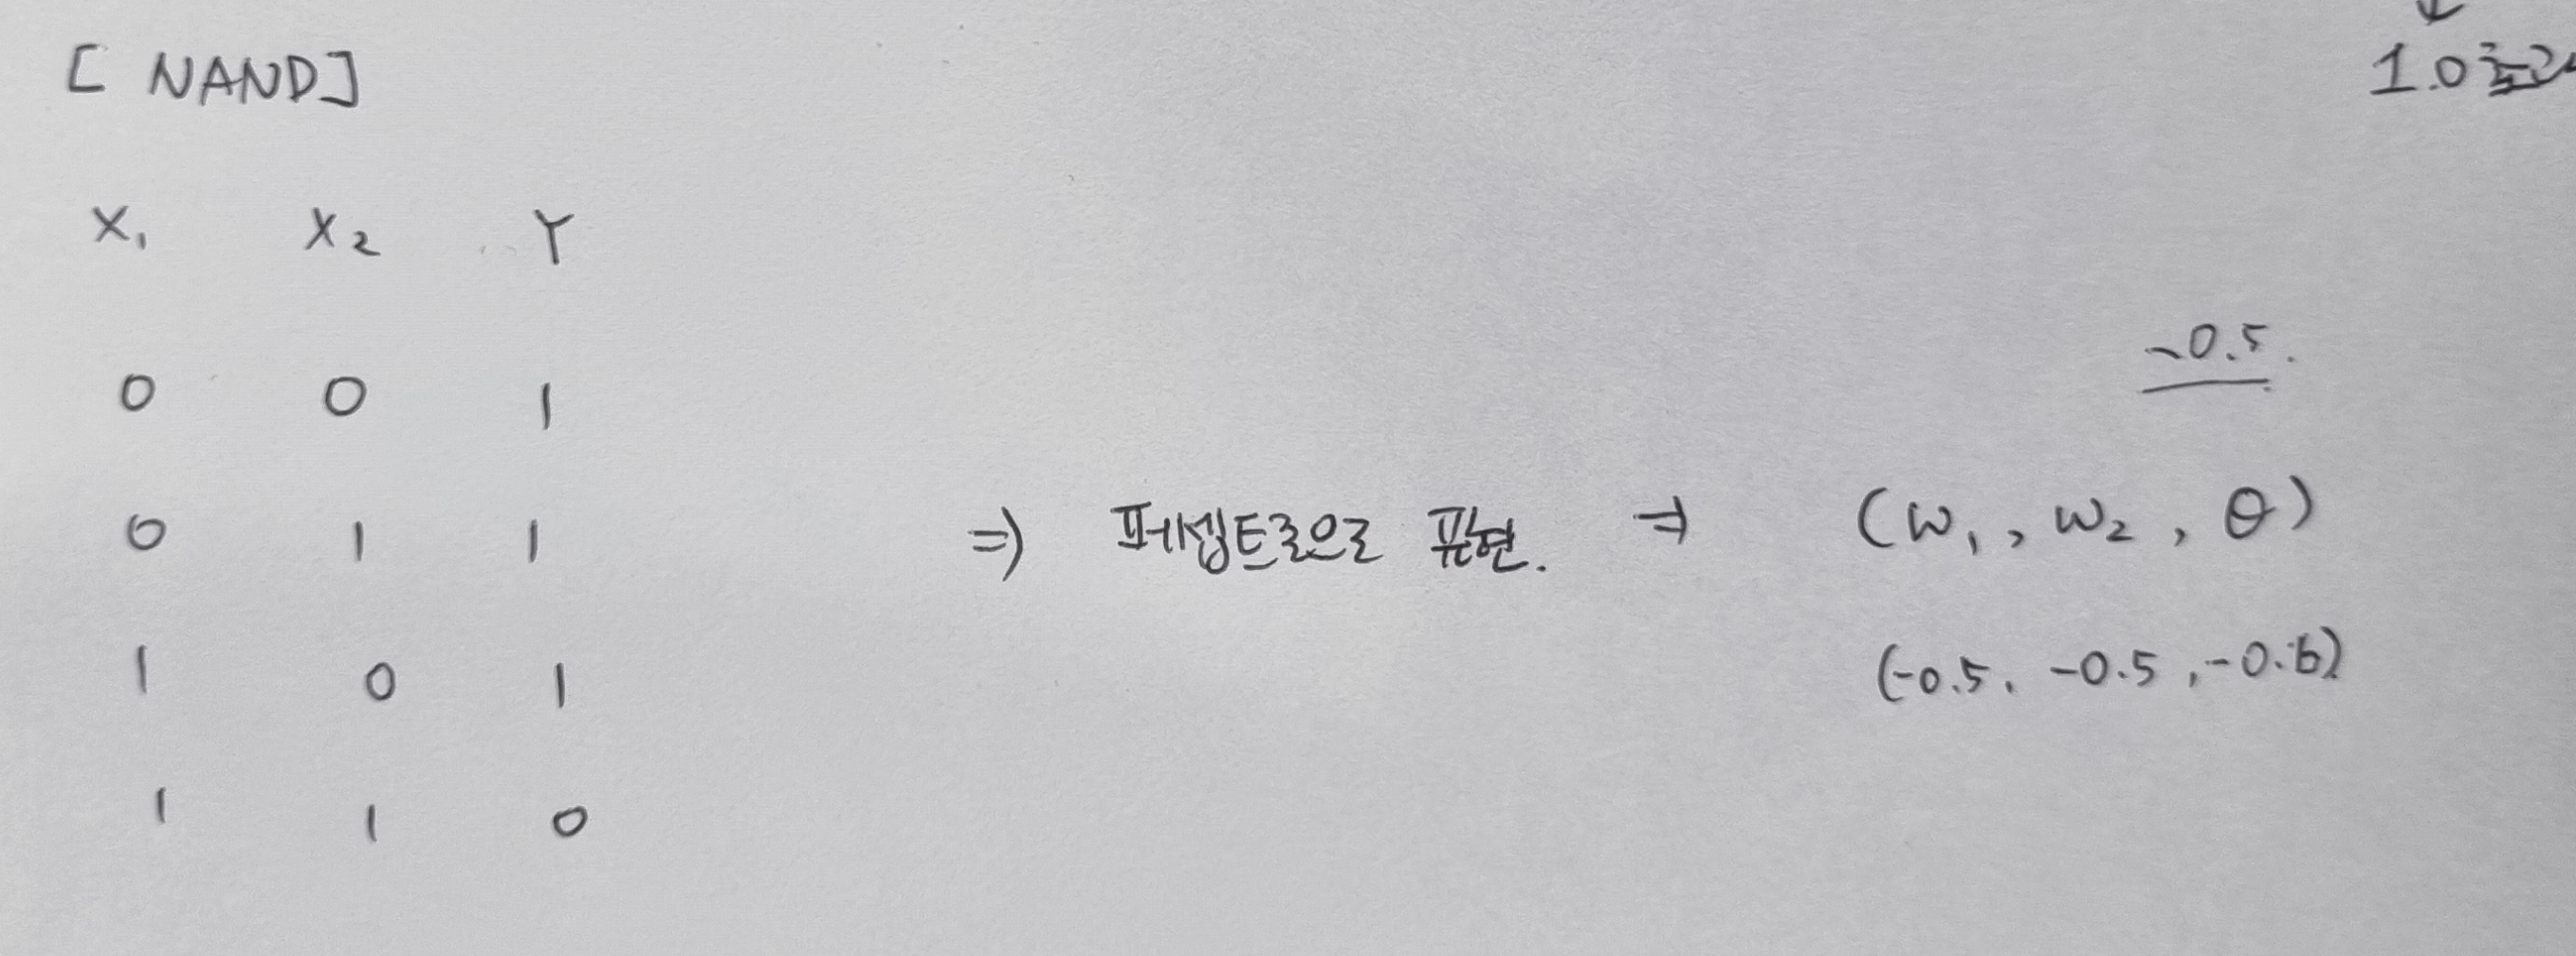 [ NAND]
1.0
X₁ X₂ Y
-0.5.
0 0 1
0 1 1 => 퍼셉트론으로 표현. => (w₁, w₂, θ)
1 0 1 (-0.5, -0.5, -0.6)
1 1 0